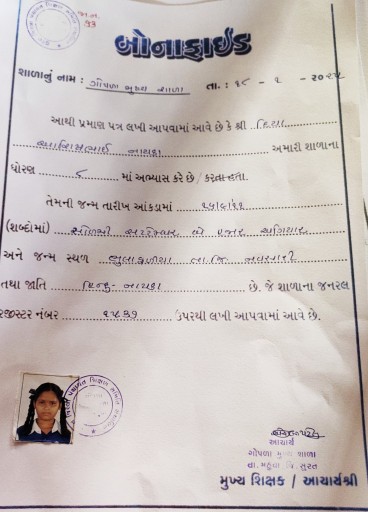 જા.નં. ૧૩
બોનાફાઈડ
શાળાનું નામ : ગોપળા મુખ્ય શાળા તા. : ૧૮ - ૧ - ૨૦૨૫
આથી પ્રમાણ પત્ર લખી આપવામાં આવે છે કે શ્રી દિયા
નાયકા અમારી શાળાના
ધોરણ ૮ માં અભ્યાસ કરે છે / કરતા હતા.
તેમની જન્મ તારીખ આંકડામાં
(શબ્દોમાં) સોળમી સપ્ટેમ્બર બે હજાર અગિયાર
અને જન્મ સ્થળ તા. જિ. નવસારી
તથા જાતિ હિન્દુ - નાયકા છે. જે શાળાના જનરલ
રજીસ્ટર નંબર ૧૫૩૭ ઉપરથી લખી આપવામાં આવે છે.
આચાર્ય
ગોપળા મુખ્ય શાળા
તા. મહુવા જિ. સુરત
મુખ્ય શિક્ષક / આચાર્યશ્રી